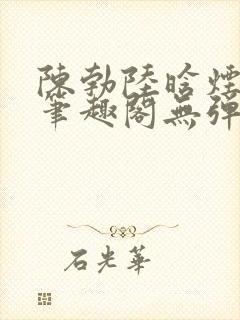 陳勃陸晗煙
筆趣閣無彈
石光華